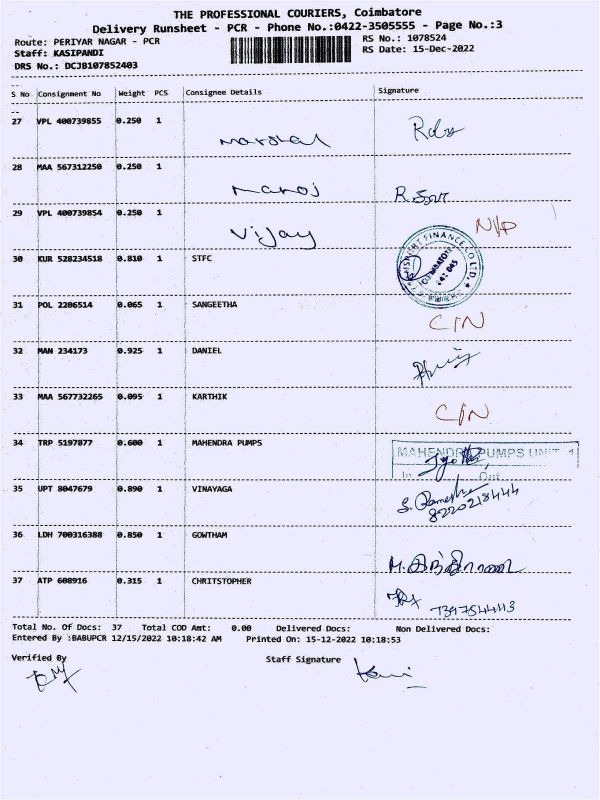 THE PROFESSIONAL COURIERS, Coimbatore
Delivery Runsheet - PCR - Phone No.:0422-3505555 - Page No.:3
Route: PERIYAR NAGAR - PCR
RS No.: 1078524
Staff: KASIPANDI
RS Date: 15-Dec-2022
DRS No.: DCJB107852403
S No Consignment No Weight PCS Consignee Details Signature
27 VPL 400739855 0.250 1
28 MAA 567312250 0.250 1 Manoj
29 VPL 400739854 0.250 1 Vijay
30 KUR 528234518 0.810 1 STFC
31 POL 2206514 0.065 1 SANGEETHA
32 MAN 234173 0.925 1 DANIEL
33 MAA 567732265 0.095 1 KARTHIK
34 TRP 5197877 0.600 1 MAHENDRA PUMPS MAHENDRA PUMPS UNIT
In Out
35 UPT 8047679 0.890 1 VINAYAGA S. Ramesh
8220218444
36 LDH 700316388 0.850 1 GOWTHAM
37 ATP 608916 0.315 1 CHRITSTOPHER
Total No. Of Docs: 37 Total COD Amt: 0.00 Delivered Docs: Non Delivered Docs:
Entered By :BABUPCR 12/15/2022 10:18:42 AM Printed On: 15-12-2022 10:18:53
Verified By Staff Signature